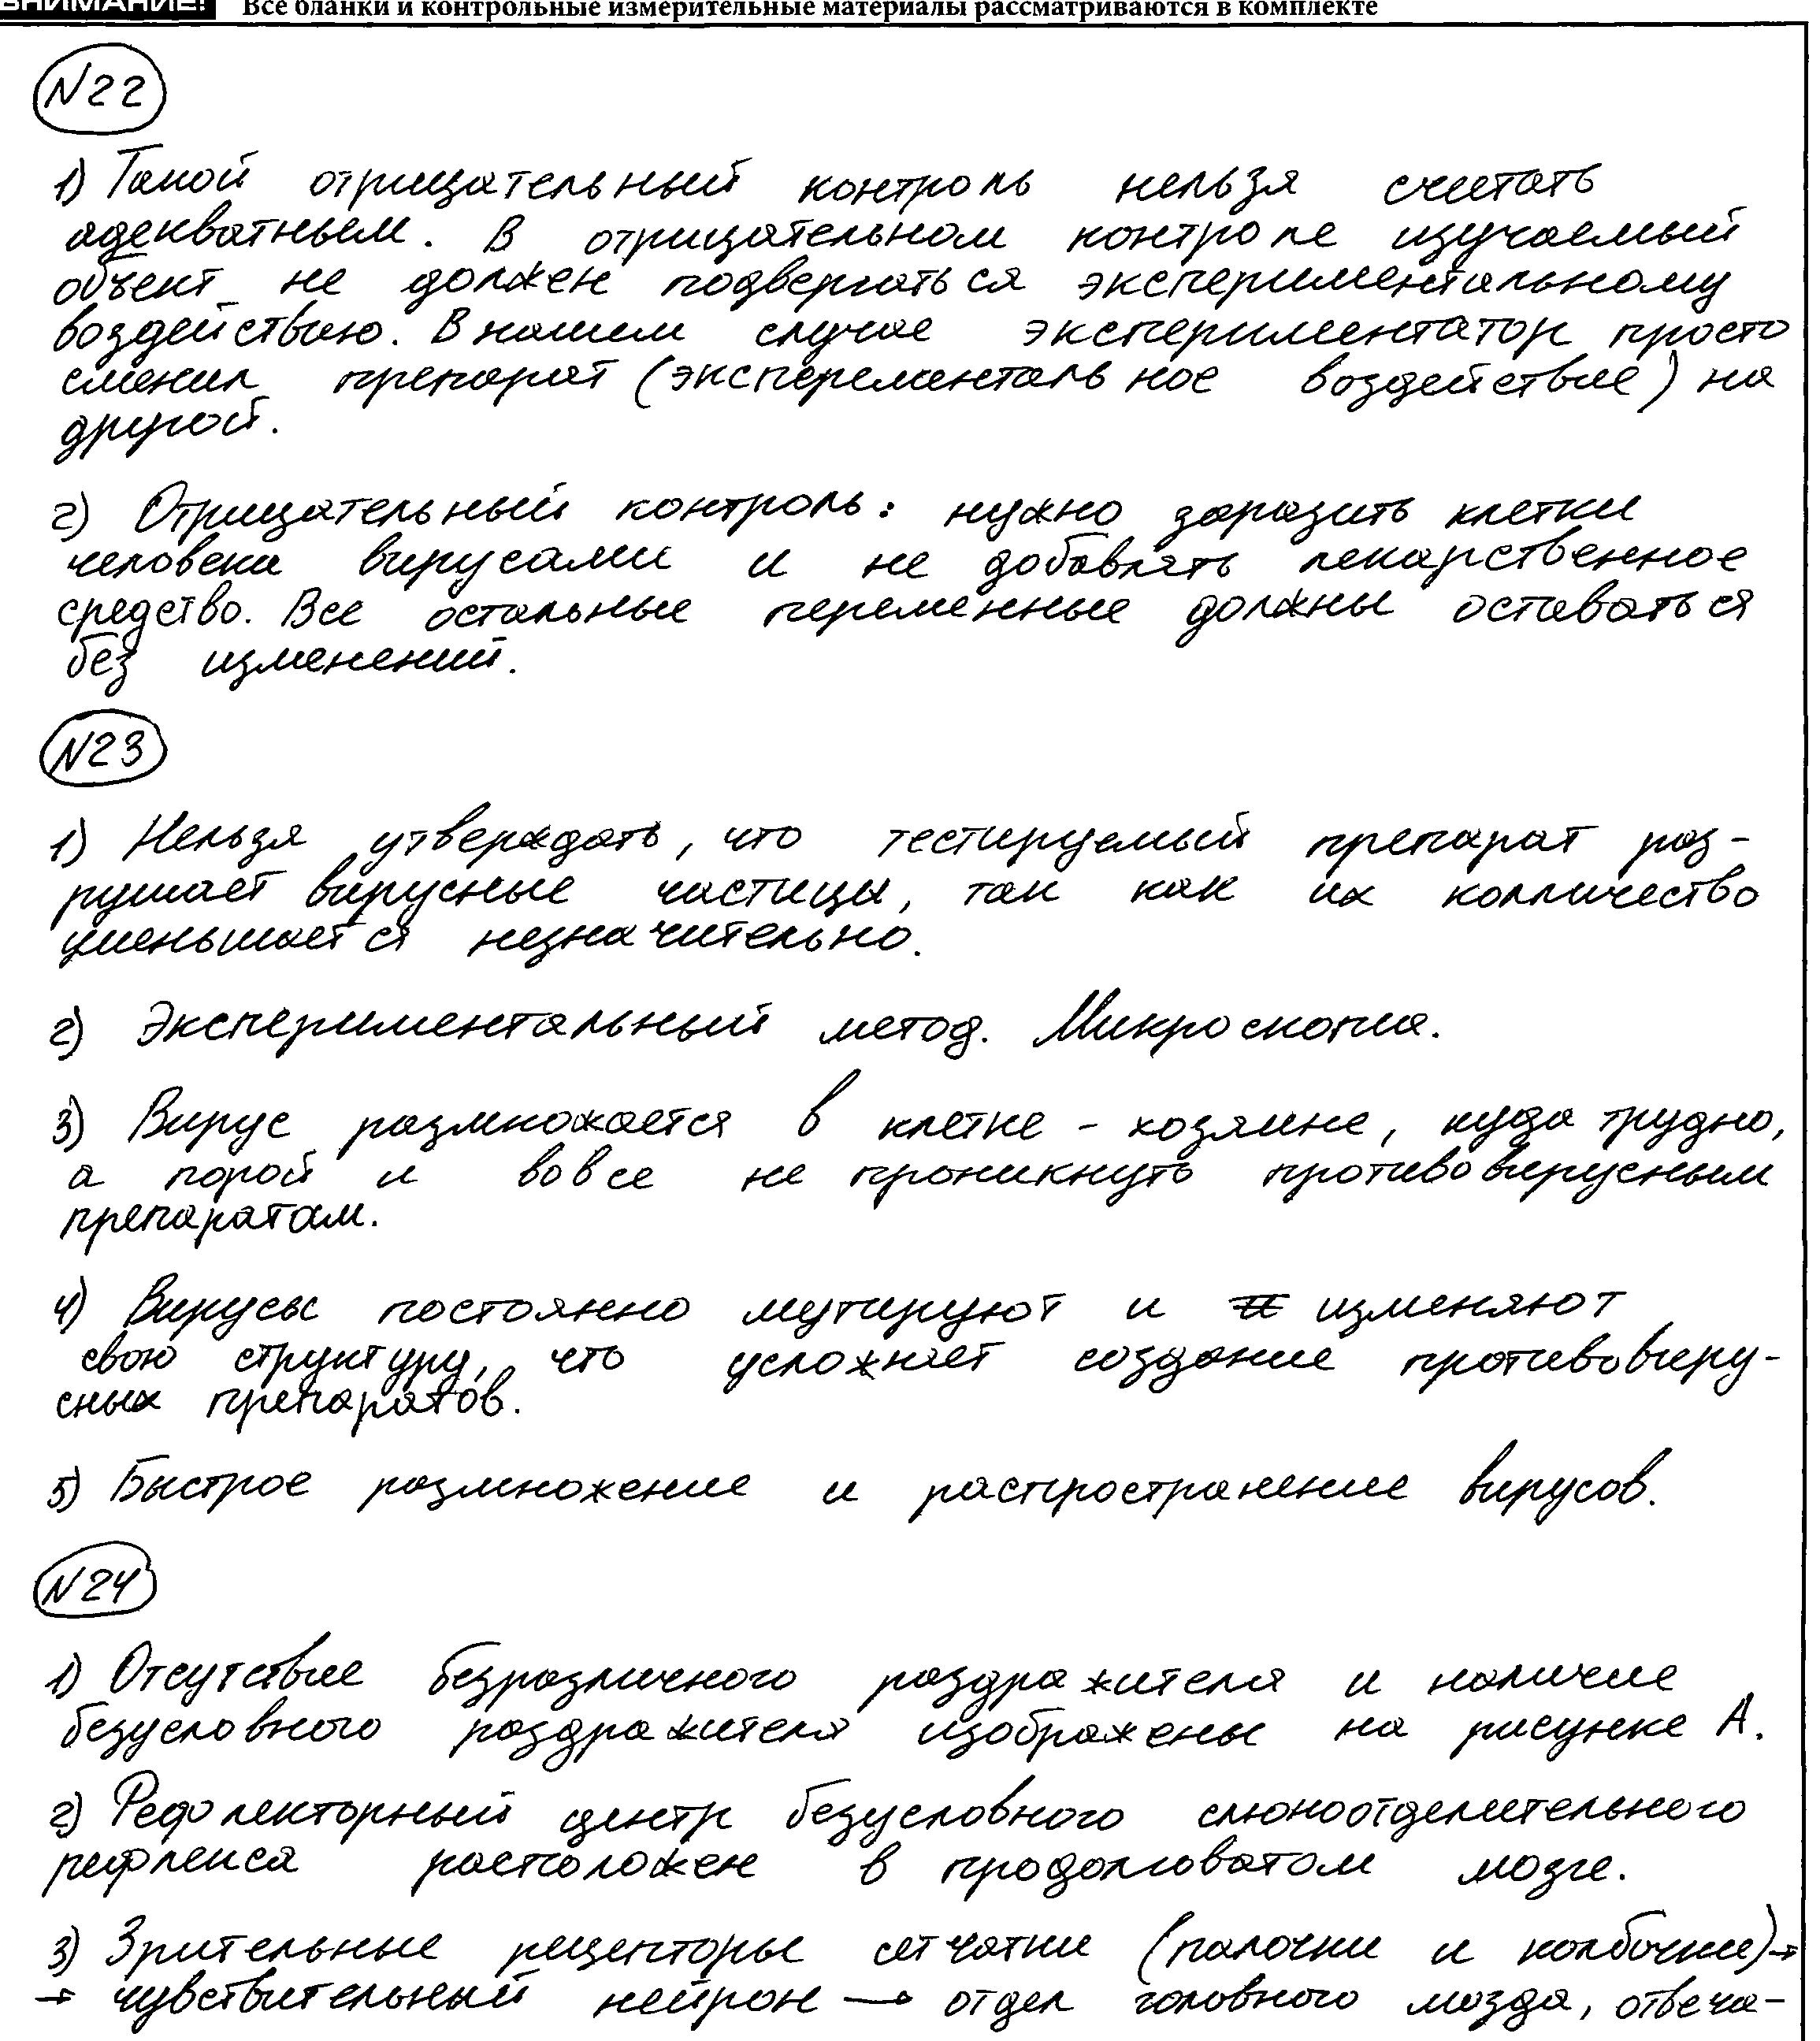 ВНИМАНИЕ! Все бланки и контрольные измерительные материалы рассматриваются в комплекте
N22
1) Такой отрицательный контроль нельзя считать
адекватным. В отрицательном контроле изучаемый
объект не должен подвергаться экспериментальному
воздействию. В нашем случае экспериментатор просто
сменил препарат (эксперементальное воздействие) на
другой.
2) Отрицательный контроль: нужно заразить клетки
человека вирусами и не добавлять лекарственное
средство. Все остальные переменные должны оставаться
без изменений.
N23
1) Нельзя утверждать, что тестируемый препарат раз-
рушает вирусные частицы, так как их колличество
уменьшается незначительно.
2) Экспериментальный метод. Микроскопия.
3) Вирус размножается в клетке - хозяине, куда трудно,
а порой и вовсе не проникнуть противовирусным
препаратам.
4) Вирусы постоянно мутируют и изменяют
свою структуру, что усложняет создание противовиру-
сных препаратов.
5) Быстрое размножение и распространение вирусов.
N24
1) Отсутствие безразличного раздражителя и наличие
безусловного раздражителя изображены на рисунке А.
2) Рефлекторный центр безусловного слюноотделительного
рефлекса расположен в продолговатом мозге.
3) Зрительные рецепторы сетчатки (палочки и колбочки) →
→ чувствительный нейрон → отдел головного мозда, отвеча-